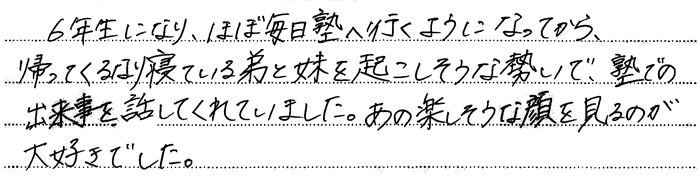 6年生になり、ほぼ毎日塾へ行くようになってから、
帰ってくるなり寝ている弟と妹を起こしそうな勢いで、塾での
出来事を話してくれていました。あの楽しそうな顔を見るのが
大好きでした。